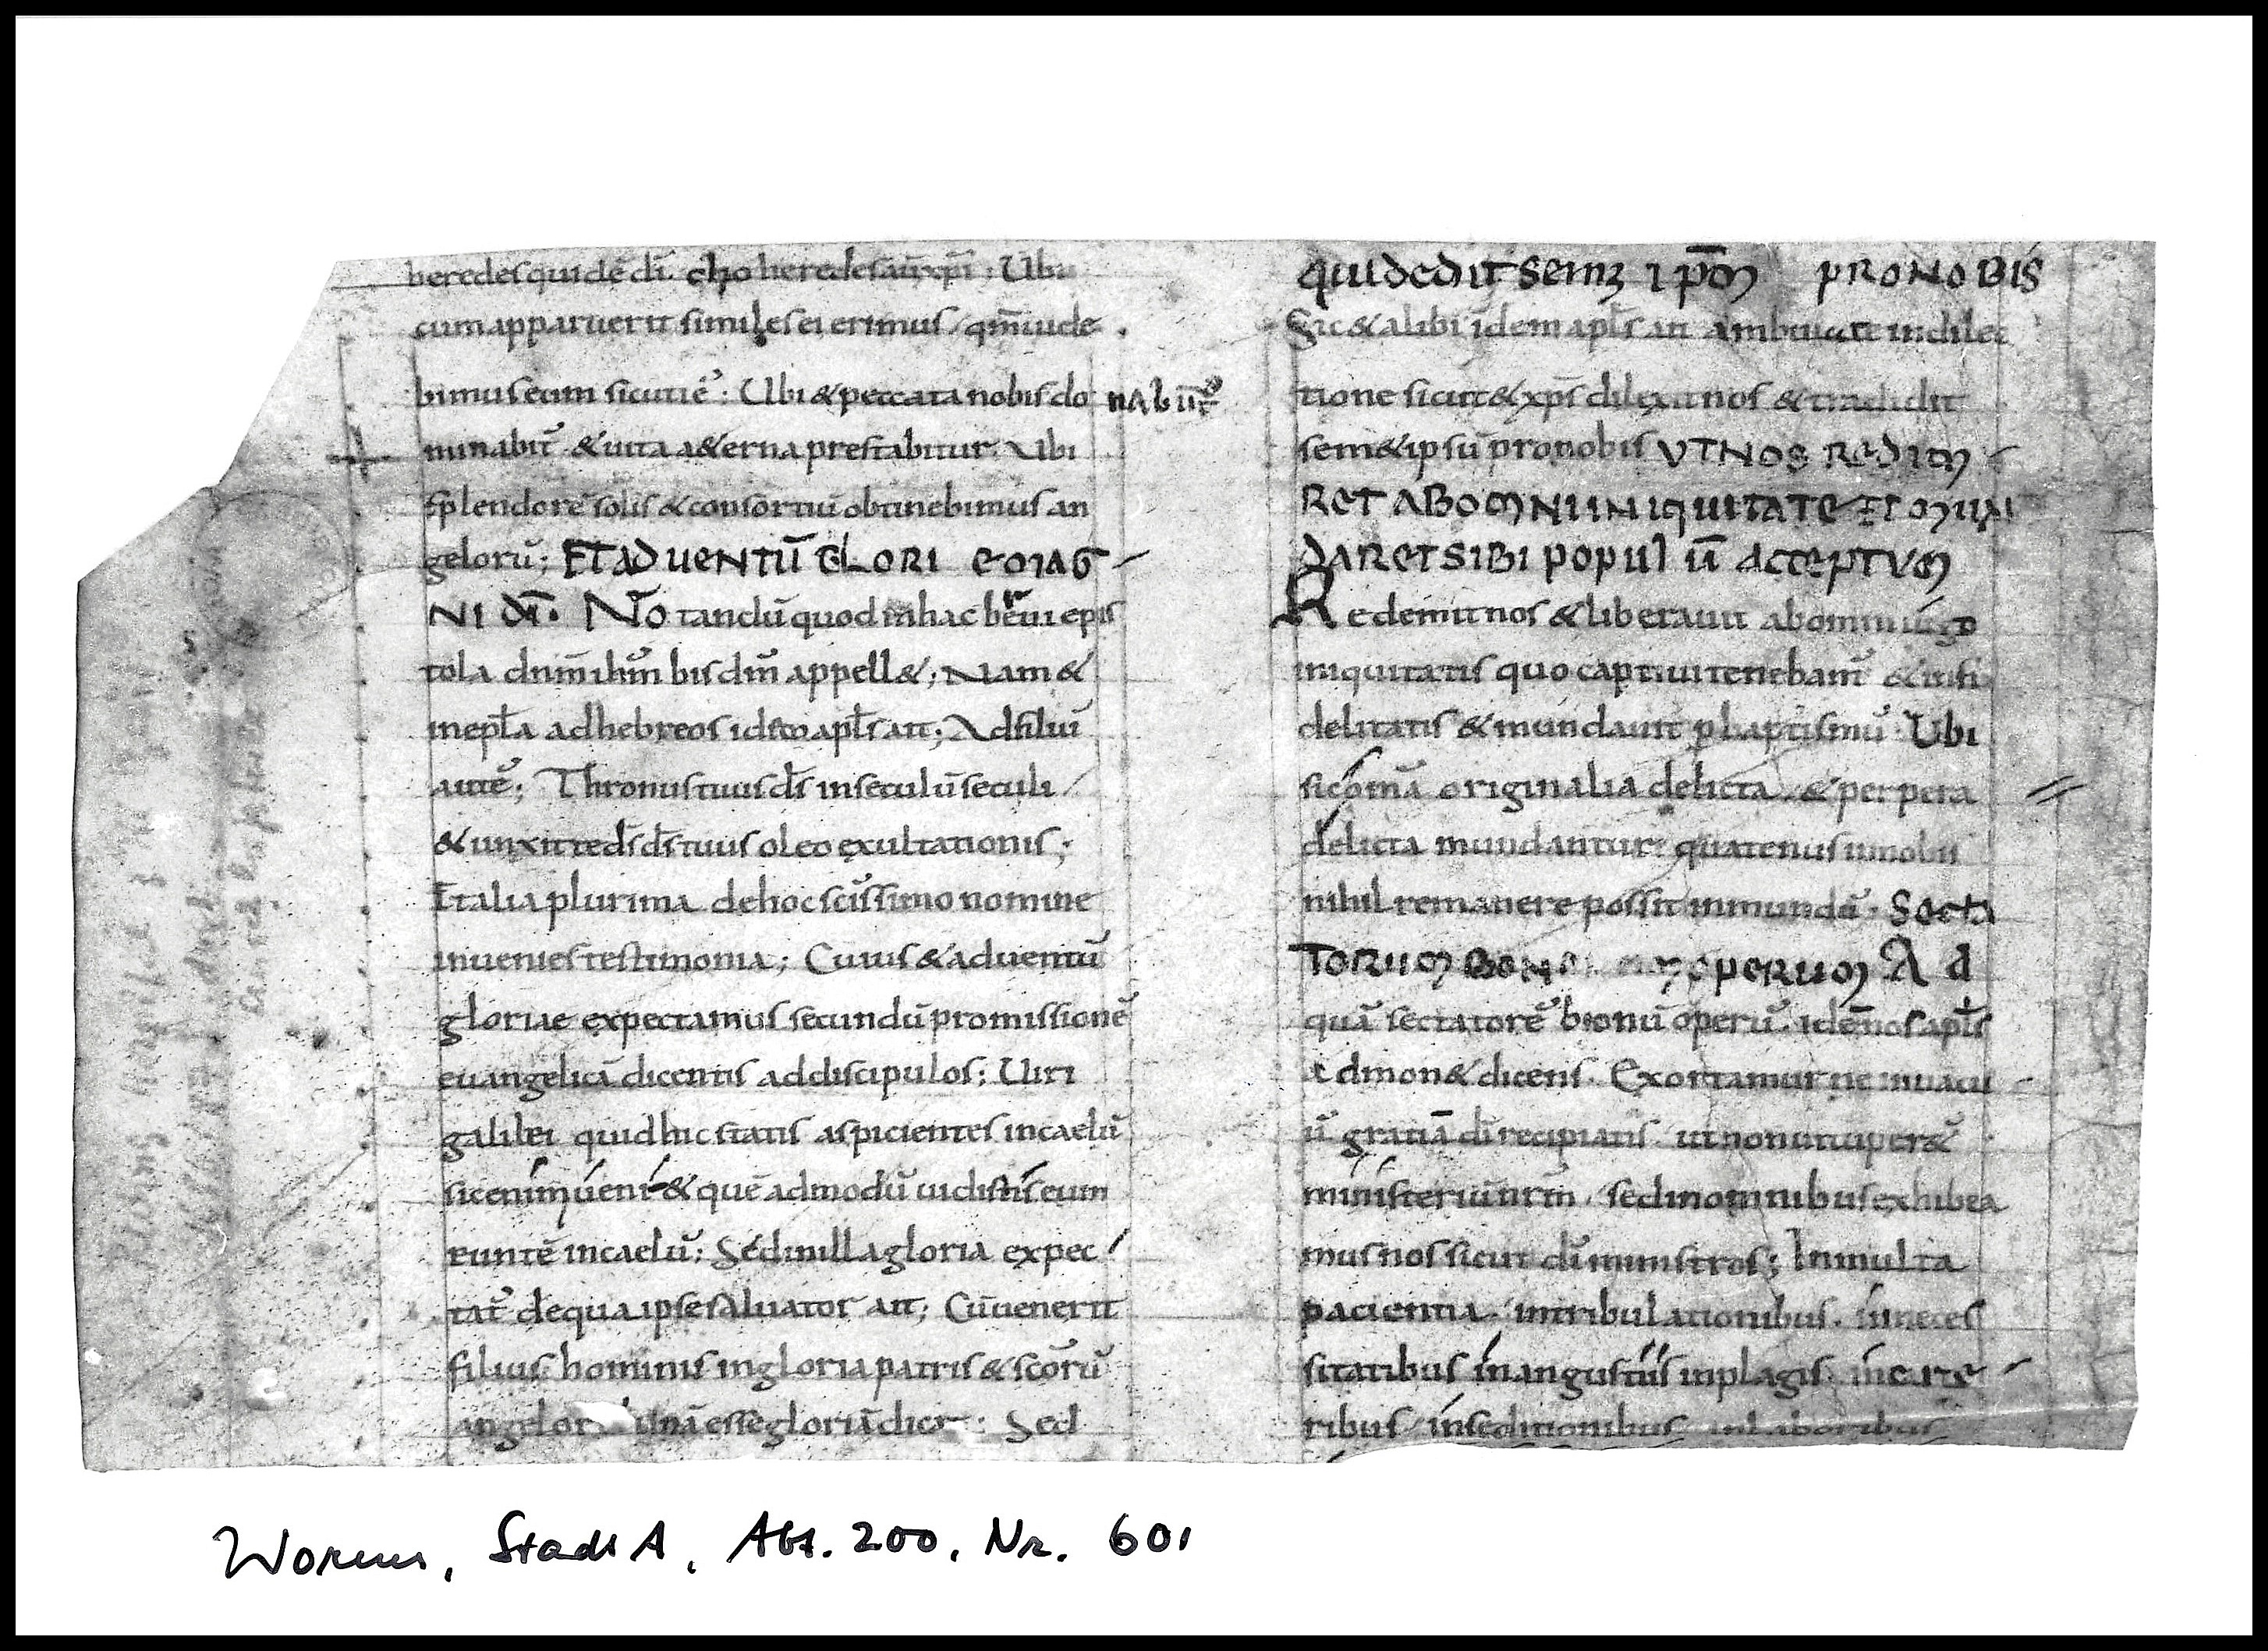 heredes quidē dī. cho heredes aū xpī; Ubi
cum apparuerit similes ei erimus, qm̄ uide
bimus eum sicuti ē; Ubi & peccata nobis do nabunt̄
minabit̄ & uita a&erna prestabitur. Ubi
splendorē solis & consortiū obtinebimus an
gelorū; ET ADUENTŪ GLORI E MAG
NI DĪ. No tandū quod in hac breui epis
tola dnm̄ ihm̄ bis dm̄ appell&; Nam &
in epl̄a ad hebreos idem apl̄s ait; Ad filiū
autē; Thronus tuus ds̄ in seculū seculi
& unxit te ds̄ ds̄ tuus oleo exultationis;
Et alia plurima de hoc scissimo nomine
inuenies testimonia; Cuius & aduentū
gloriae expectamus secundū promissionē
euangelicā dicentis ad discipulos; Uiri
galilei quid hic statis aspicientes in caelū
sic enim ueni& quē admodū uidistis eum
euntē in caelū; Sed in illa gloria expec
tat̄ de qua ipse saluator ait; Cū uenerit
filius hominis in gloria patris & scōrū
angelor unā esse gloriā dicit; Sed
QUI DEDIT SEM& IPSUM PRO NOBIS
Sic & alibi idem apl̄s ait ambulate in dilec
tione sicut & xps̄ dilexit nos & tradidit
sem& ipsū pro nobis UT NOS REDIM
RET AB OMNI INIQUITATE ET MUN
DARET SIBI POPULŪ ACCEPTUM
Redemit nos & liberauit ab omni iugo
iniquitatis quo captiui tenebam̄ & infi
delitatis & mundauit p baptismū. Ubi
sic om̄a originalia delicta & perpeta
delicta mundantur. quatenus in nobis
nihil remanere possit inmundū. SECTA
TORUM BONORUM OPERUM Ad
quā sectatorē bonū operū. idē nos apl̄s
admon& dicens. Exortamur ne in uacu
ū gratiā dī recipiatis ut non uituper&
ministeriū nrm̄. sed in omnibus exhibea
mus nos sicut dī ministros; In multa
pacientia. in tribulationibus. in neces
sitatibus in angustiis in plagis. in carce
ribus in seditionibus in laboribus
Worms, StadtA, Abt. 200, Nr. 601